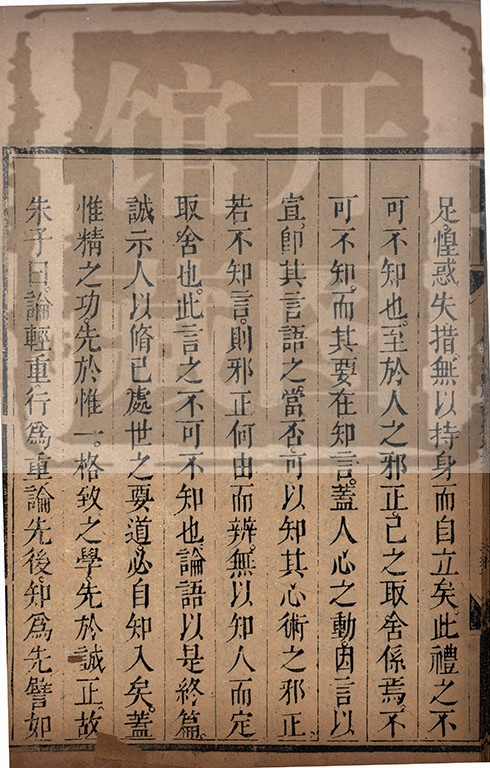 足。惶惑失措。無以持身而自立矣。此禮之不
可不知也。至於人之邪正。己之取舍係焉。不
可不知。而其要在知言。蓋人心之動。因言以
宣。卽其言語之當否。可以知其心術之邪正
若不知言。則邪正何由而辨。無以知人而定
取舍也。此言之不可不知也。論語以是終篇。
誠示人以脩己處世之要道。必自知入矣。蓋
惟精之功。先於惟一。格致之學。先於誠正。故
朱子曰。論輕重。行為重。論先後。知為先。譬如